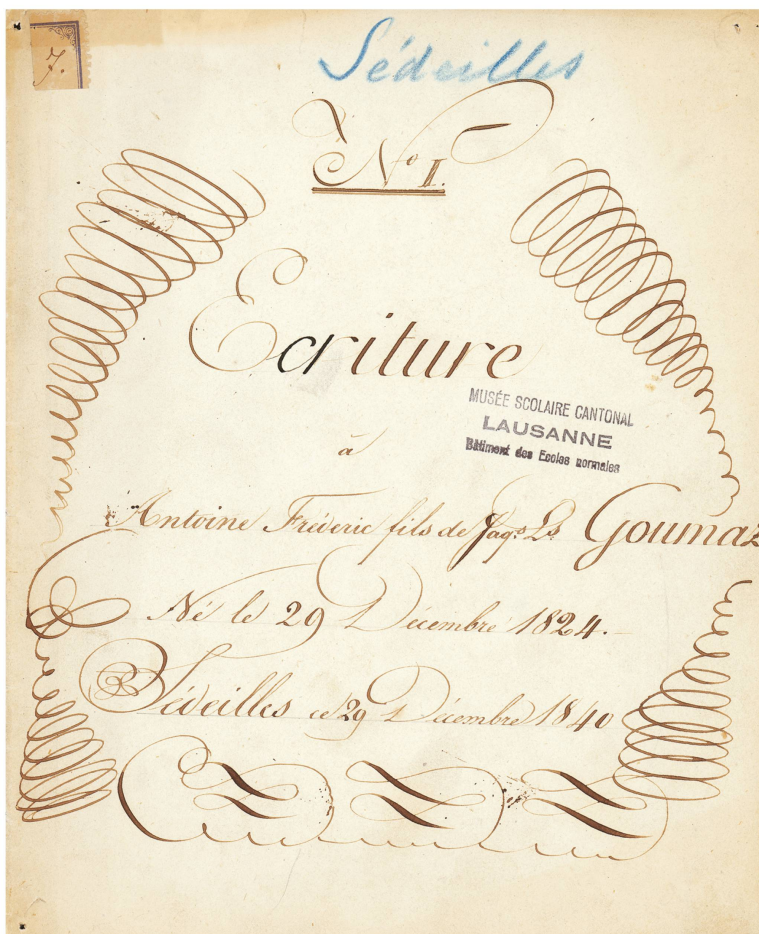 7.
Sédeilles
No I.
Ecriture
MUSÉE SCOLAIRE CANTONAL
LAUSANNE
Bâtiment des Ecoles normales
à
Antoine Fréderic fils de Jaqs Ls Goumaz
Né le 29 Décembre 1824.
Sédeilles ce 29 Décembre 1840